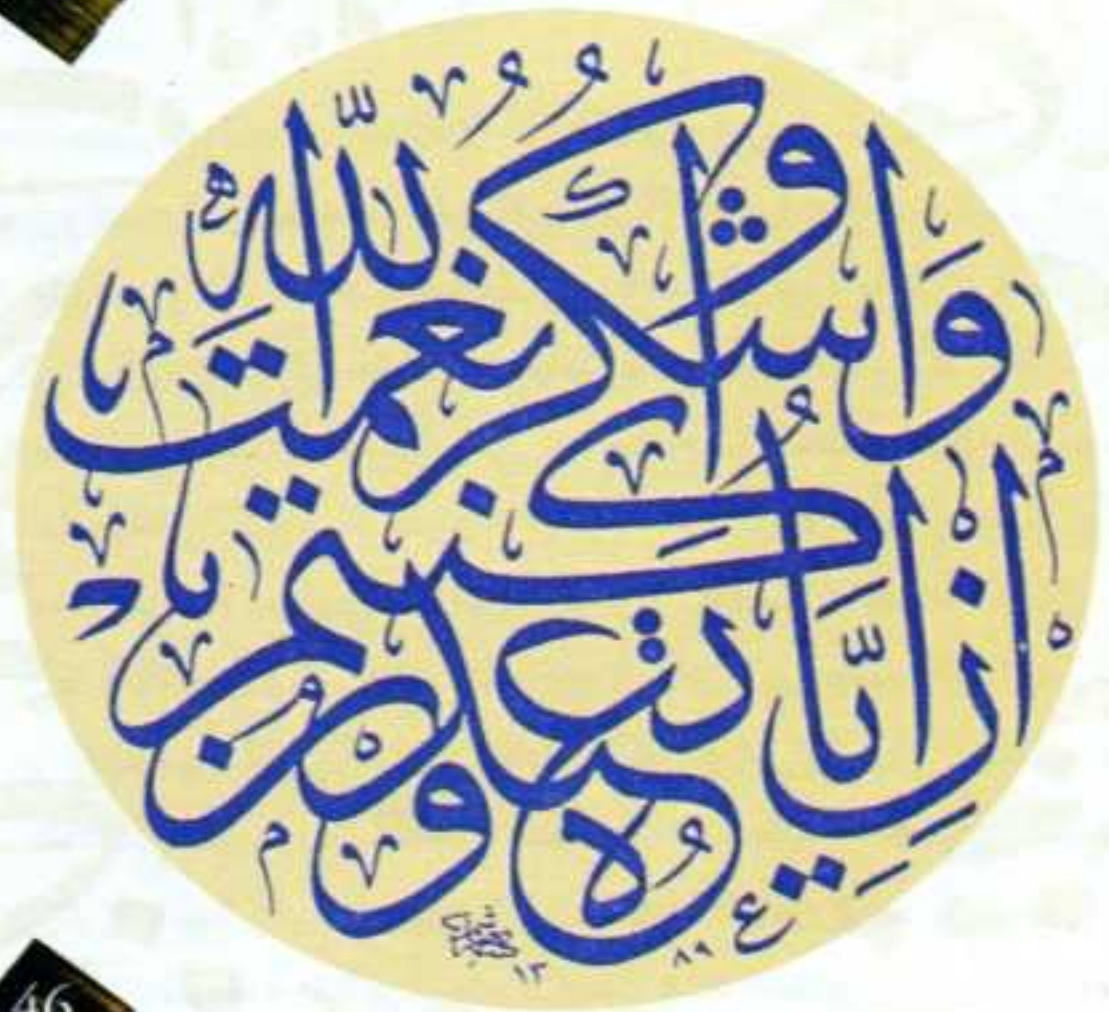 وَاشْكُرُوا نِعْمَتَ اللّٰهِ
إِنْ كُنْتُمْ إِيَّاهُ تَعْبُدُونَ
ع
١٣٨٩
46